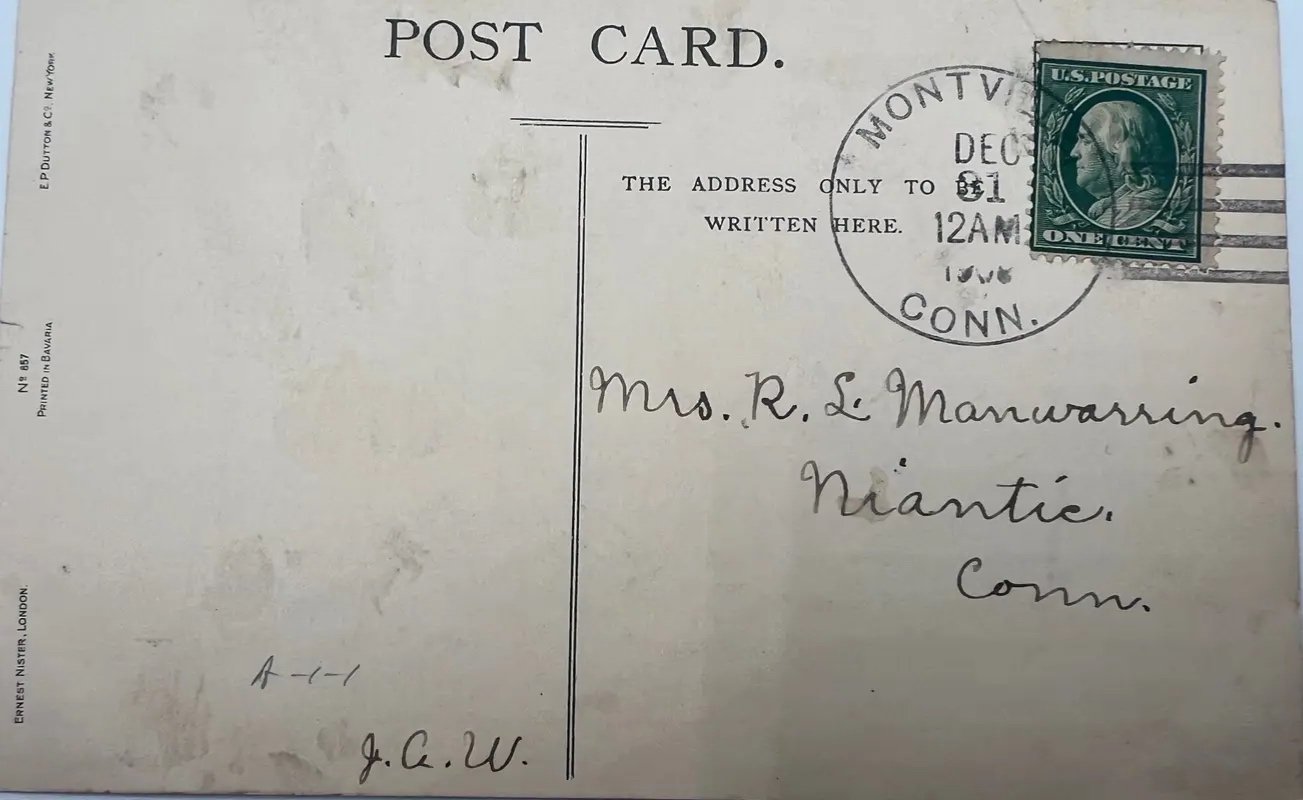 POST CARD.
E.P. DUTTON & CO. NEW YORK
No 857
PRINTED IN BAVARIA
ERNEST NISTER, LONDON.
THE ADDRESS ONLY TO BE
WRITTEN HERE.
U.S. POSTAGE
ONE CENT
DEC
31
12 AM
CONN.
Mrs. R. L. Manwarring.
Niantic.
Conn.
A-1-1
J.A.W.